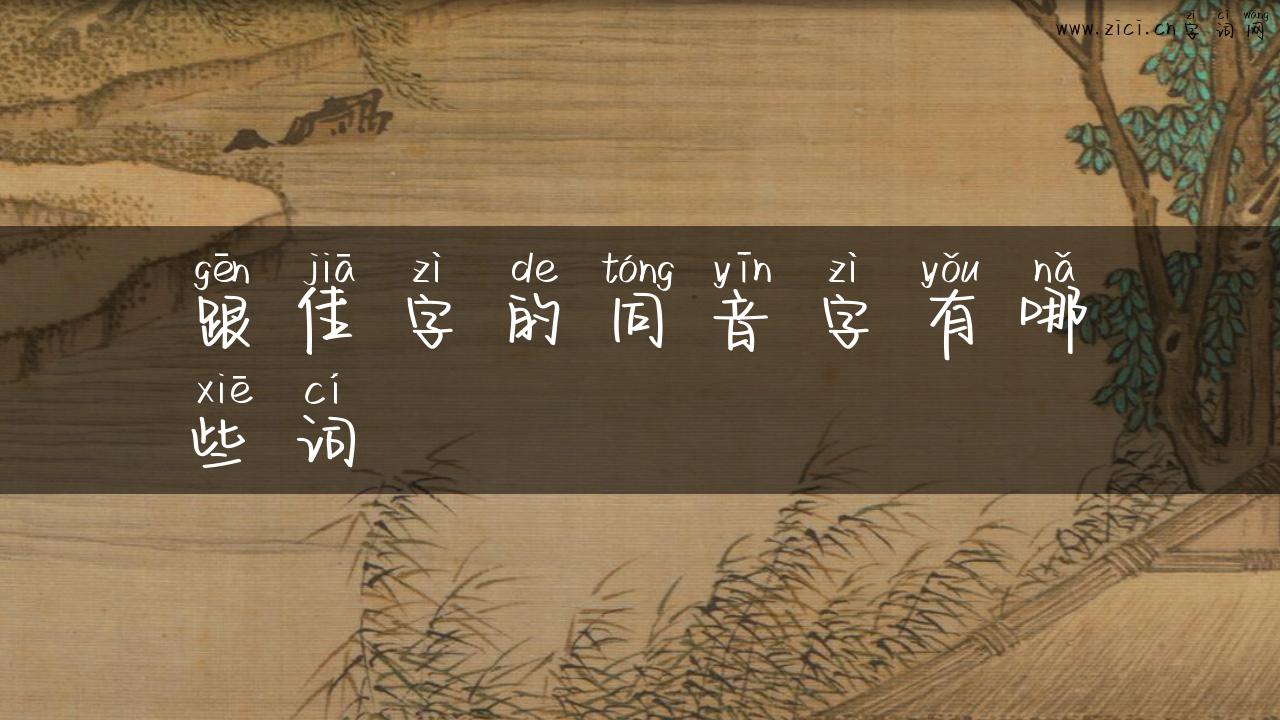 zì cí wǎng
www.zici.cn字词网
gēn jiā zì de tóng yīn zì yǒu nǎ
跟佳字的同音字有哪
xiē cí
些词